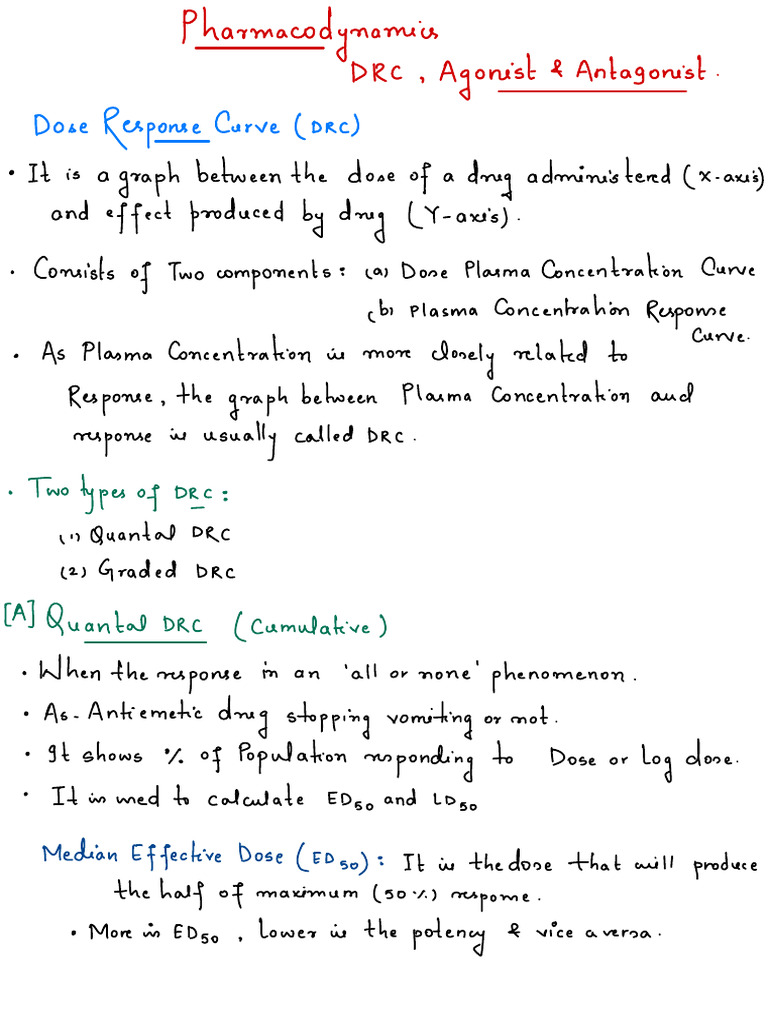 Pharmacodynamics
DRC, Agonist & Antagonist.
Dose Response Curve (DRC)
• It is a graph between the dose of a drug administered (X-axis)
and effect produced by drug (Y-axis).
• Consists of Two components: (a) Dose Plasma Concentration Curve
(b) Plasma Concentration Response
Curve.
• As Plasma Concentration is more closely related to
Response, the graph between Plasma Concentration and
response is usually called DRC.
• Two types of DRC:
(1) Quantal DRC
(2) Graded DRC
[A] Quantal DRC (Cumulative)
• When the response in an 'all or none' phenomenon.
• As - Antiemetic drug stopping vomiting or not.
• It shows % of Population responding to Dose or Log dose.
• It is used to calculate ED50 and LD50
Median Effective Dose (ED50): It is the dose that will produce
the half of maximum (50%) response.
• More is ED50, Lower is the potency & vice a versa.